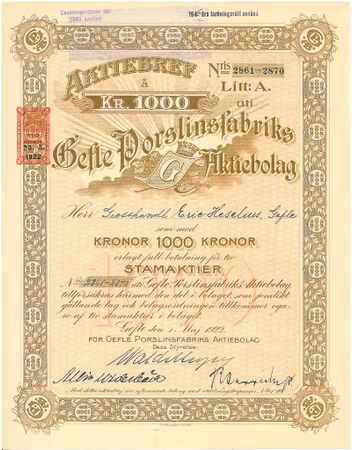 Teckningsrätten för
1923 använd
teckningsrätt använd
AKTIEBREF
Nris 2861-2870
å
Litt: A.
KR. 1000
uti
Gefle Porslinsfabriks
G
Aktiebolag
23. 5.
1922
Herr Grosshandl. Eric Heselius, Gefle
som med
KRONOR 1000 KRONOR
erlagt full betalning för tio
STAMAKTIER
No 2861-2870 uti Gefle Porslinsfabriks Aktiebolag,
tillförsäkras härmed den del i bolaget, som jemlikt
gällande lag och bolagsordningen tillkommer ega-
re af tio stamaktier i bolaget.
Gefle den 1 Maj 1922.
FÖR GEFLE PORSLINSFABRIKS AKTIEBOLAG
Dess Styrelse: